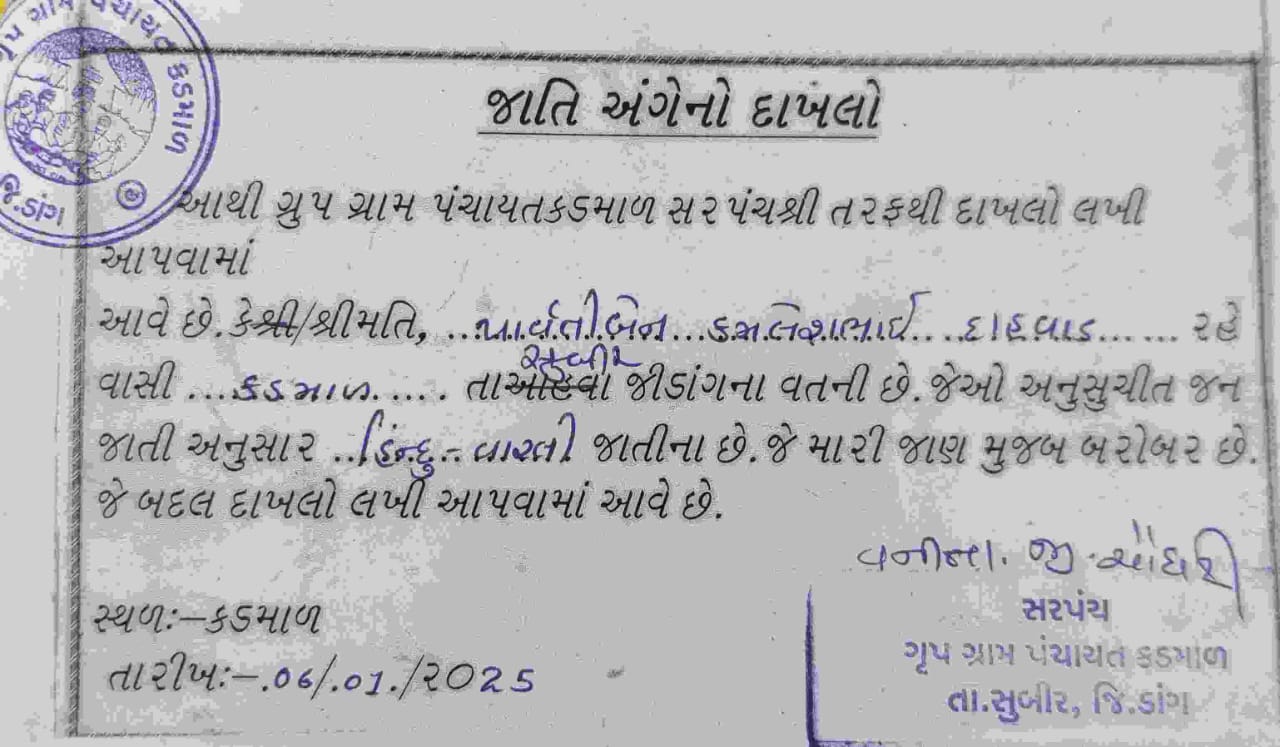 ગૃપ ગ્રામ પંચાયત કડમાળ
જિ.ડાંગ
જાતિ અંગેનો દાખલો
આથી ગ્રુપ ગ્રામ પંચાયતકડમાળ સરપંચશ્રી તરફથી દાખલો લખી
આપવામાં
આવે છે. કેશ્રી/શ્રીમતિ, ...પાર્વતીબેન...કમલેશભાઈ.... ......રહે
સુબીર
વાસી ...કડમાળ...... તાઆહવા જીડાંગના વતની છે. જેઓ અનુસુચીત જન
જાતી અનુસાર ..હિન્દુ-વારલી જાતીના છે. જે મારી જાણ મુજબ બરોબર છે.
જે બદલ દાખલો લખી આપવામાં આવે છે.
વનીતા. જી. ચૌધરી
સ્થળ:-કડમાળ
તારીખ:-.06/.01./૨૦25
સરપંચ
ગૃપ ગ્રામ પંચાયત કડમાળ
તા.સુબીર, જિ.ડાંગ